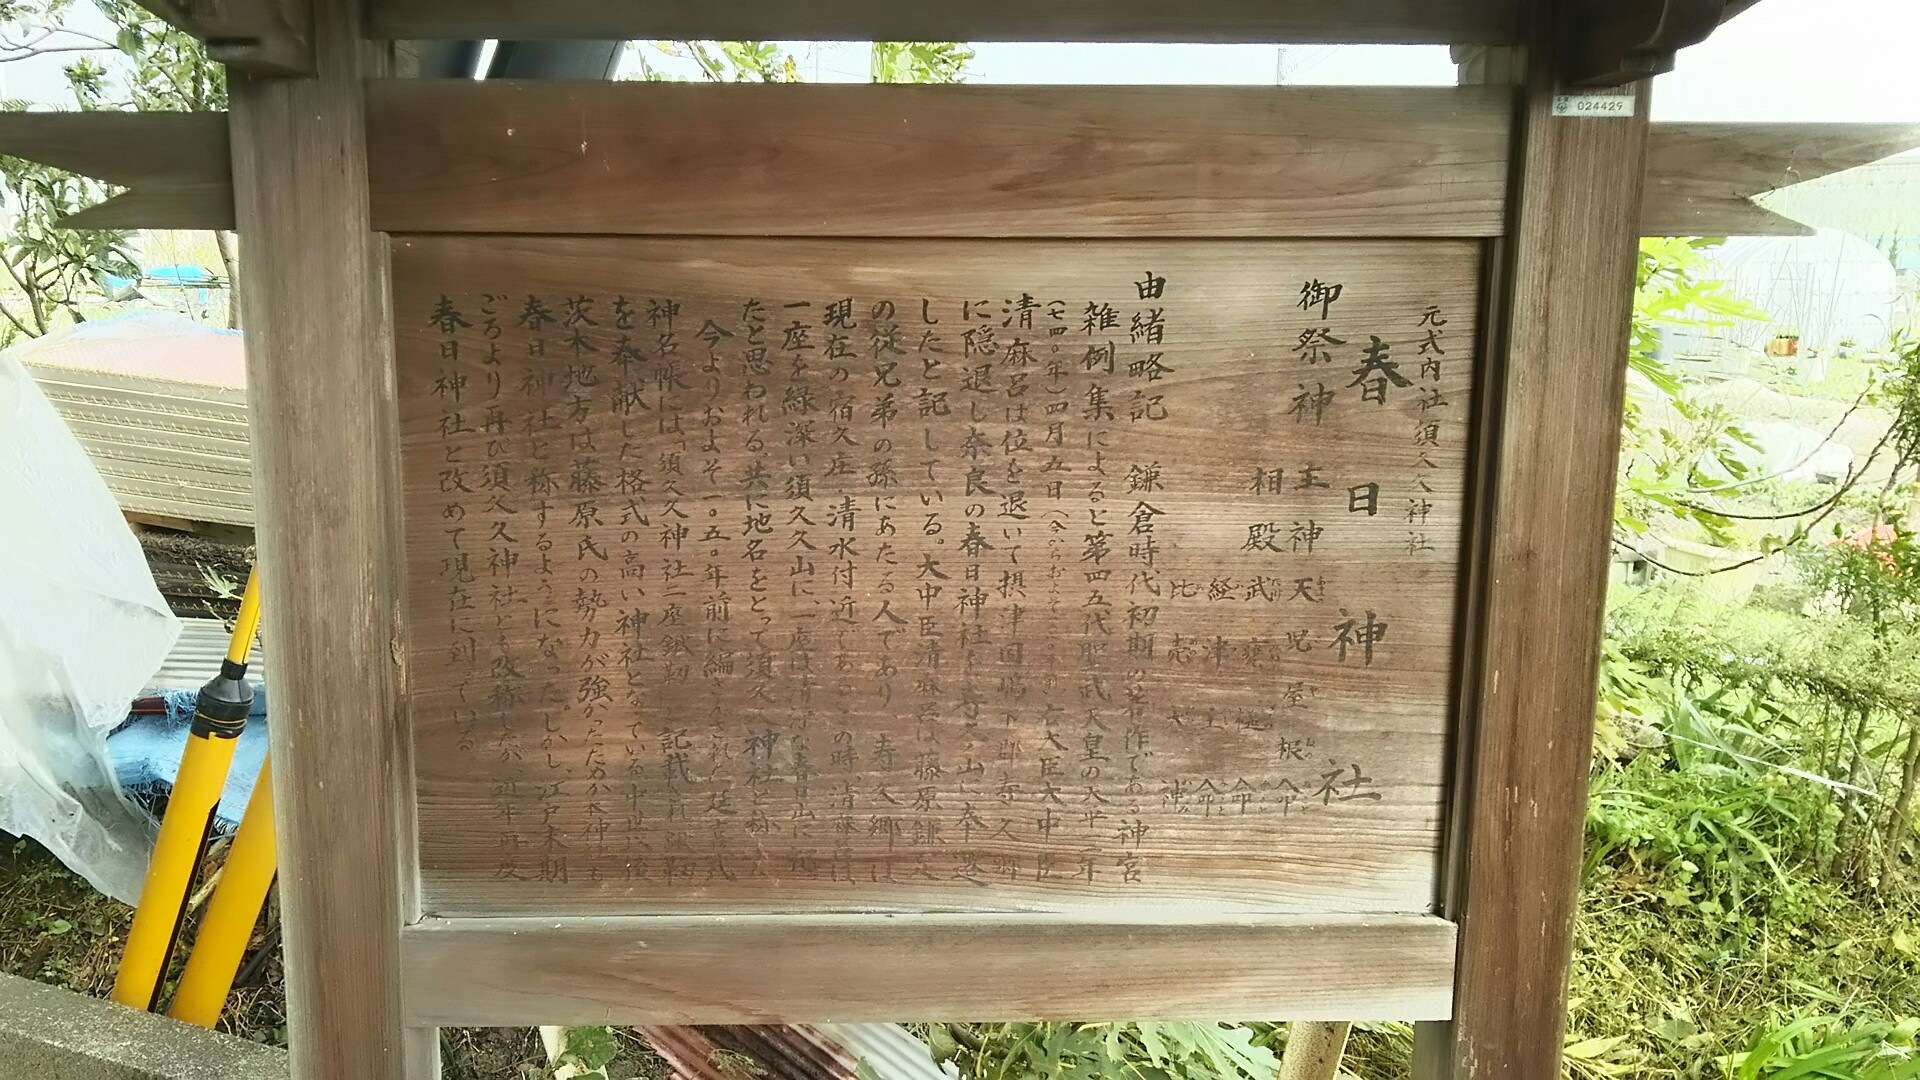 元式内社須久久神社
春日神社
御祭神 主神 天児屋根命
相殿 武甕槌命
経津主命
比売大神
由緒略記 鎌倉時代初期の著作である神宮
雑例集によると第四五代聖武天皇の天平十二年
(七四〇年)四月五日(今からおよそ 右大臣大中臣
清麻呂は位を退いて摂津国嶋下郡寿久郷
に隠退し奈良の春日神社を寿久山に奉遷
したと記している。大中臣清麻呂は藤原鎌足
の従兄弟の孫にあたる人であり、寿久郷は
現在の宿久庄、清水付近であ この時、清麻呂は、
一座を緑深い須久久山に、一座は清浄な春日山に祀
たと思われる。共に地名をとって須久久神社と称
今よりおよそ一〇五〇年前に編さんされた延喜式
神名帳には、「須久久神社二座鍬靭」と記載され鍬靭
を奉献した格式の高い神社となっている。中世以後
茨木地方は藤原氏の勢力が強かったためか本神 も
春日神社と称するようになった。しかし、江戸末期
ごろより再び須久久神社とも改称したが、近年再度
春日神社と改めて現在に到っている。
024429